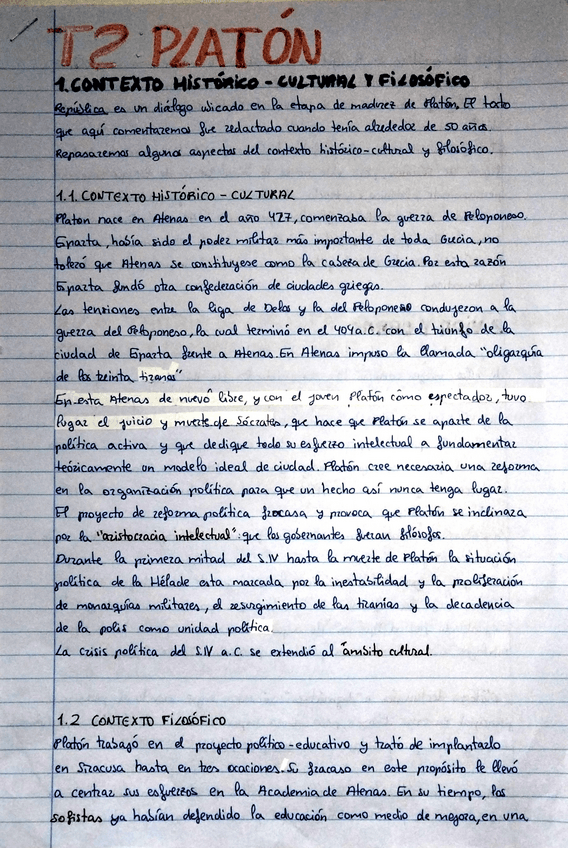 T2 PLATÓN
1. CONTEXTO HISTÓRICO - CULTURAL Y FILOSÓFICO
República es un diálogo ubicado en la etapa de madurez de Platón. El texto
que aquí comentaremos fue redactado cuando tenía alrededor de 50 años.
Repasaremos algunos aspectos del contexto histórico-cultural y filosófico.
1.1. CONTEXTO HISTÓRICO - CULTURAL
Platón nace en Atenas en el año 427, comenzaba la guerra de Peloponeso.
Esparta, había sido el poder militar más importante de toda Grecia, no
toleró que Atenas se constituyese como la cabeza de Grecia. Por esta razón
Esparta fundó otra confederación de ciudades griegas.
Las tensiones entre la liga de Delos y la del Peloponeso condujeron a la
guerra del Peloponeso, la cual terminó en el 404 a.C. con el triunfo de la
ciudad de Esparta frente a Atenas. En Atenas impuso la llamada "oligarquía
de los treinta tiranos"
En esta Atenas de nuevo libre, y con el joven Platón como espectador, tuvo
lugar el juicio y muerte de Sócrates, que hace que Platón se aparte de la
política activa y que dedique todo su esfuerzo intelectual a fundamentar
teóricamente un modelo ideal de ciudad. Platón cree necesaria una reforma
en la organización política para que un hecho así nunca tenga lugar.
El proyecto de reforma política fracasa y provoca que Platón se inclinara
por la "aristocracia intelectual": que los gobernantes fueran filósofos.
Durante la primera mitad del S.IV hasta la muerte de Platón la situación
política de la Hélade esta marcada por la inestabilidad y la proliferación
de monarquías militares, el resurgimiento de las tiranías y la decadencia
de la polis como unidad política.
La crisis política del S.IV a.C. se extendió al ámbito cultural.
1.2 CONTEXTO FILOSÓFICO
Platón trabajó en el proyecto político-educativo y trató de implantarlo
en Siracusa hasta en tres ocaciones. Su fracaso en este propósito le llevó
a centrar sus esfuerzos en la Academia de Atenas. En su tiempo, los
sofistas ya habían defendido la educación como medio de mejora, en una